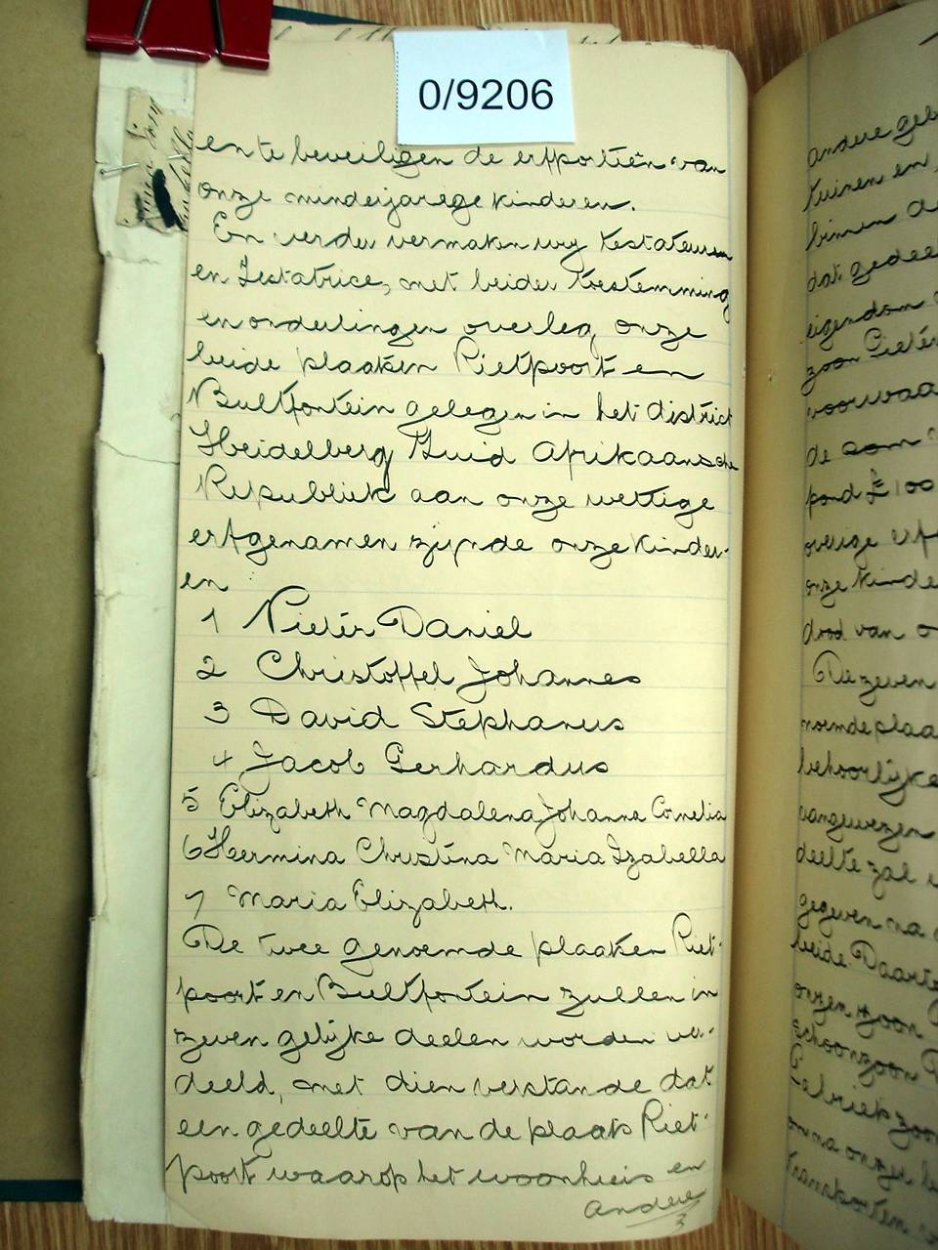 0/9206
en te beveiligen de erfportiën van
onze minderjarege kinderen.
En verder vermaken wy testateuren
en Testatrice, met beider toestemming
en onderlingen overleg onze
beide plaatsen Rietpoort en
Bultfontein gelegen in het district
Heidelberg Zuid Afrikaansche
Republiek aan onze wettige
erfgenamen zijnde onze kinder-
en
1 Pieter Daniel
2 Christoffel Johannes
3 David Stephanus
4 Jacob Gerhardus
5 Elizabeth Magdalena Johanna Cornelia
6 Hermina Christina Maria Izabella
7 Maria Elizabeth.
De twee genoemde plaatsen Riet-
poort en Bultfontein zullen in
zeven gelijke deelen worden ver-
deeld, met dien verstande dat
een gedeelte van de plaats Riet-
poort waarop het woonhuis en
andere
andere geb
tuinen en
binnen de
dat gedee
eigendom
zoon Pieter
voorwaa
de som
pond £100
overige erf
onze kinde
dood van o
De zeven
noemde plaa
behoorlijke
aangewezen
deelte zal
gegeven na
beide Daarte
onzen zoon
schoonzoon
zoon
onna onzer
transporten